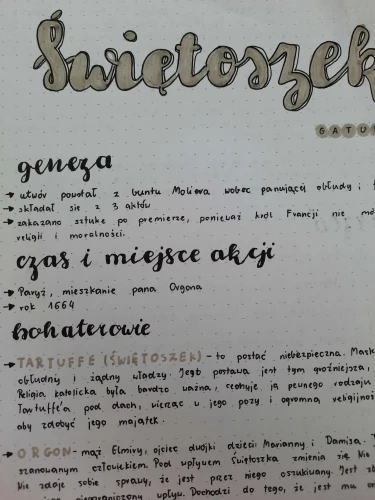 Świętoszek
GATU
geneza
→ utwór powstał z buntu Moliera wobec panującej obłudy i
→ składał się z 3 aktów
→ zakazano sztukę po premierze, ponieważ król Francji nie
religii i moralności.
czas i miejsce akcji
→ Paryż, mieszkanie pana Orgona
→ rok 1664
bohaterowie
→ TARTUFFE (ŚWIĘTOSZEK) - to postać niebezpieczna. Mask
obłudny i żądny władzy. Jego postawa jest tym groźniejsza,
Religia katolicka była bardzo ważna, cechuje ją pewnego rodzaju
Tartuffe'a pod dach, wierząc w jego pozy i ogromną religijnoś
aby zdobyć jego majątek.
→ ORGON - mąż Elmiry, ojciec dwójki dzieci: Marianny i Damisa.
szanowanym człowiekiem. Pod wpływem Świętoszka zmienia się. Nie
Nie zdaje sobie sprawy, że jest przez niego oszukiwany. Jest
nieograniczony wpływ. Dochodzi do tego, że jest mu